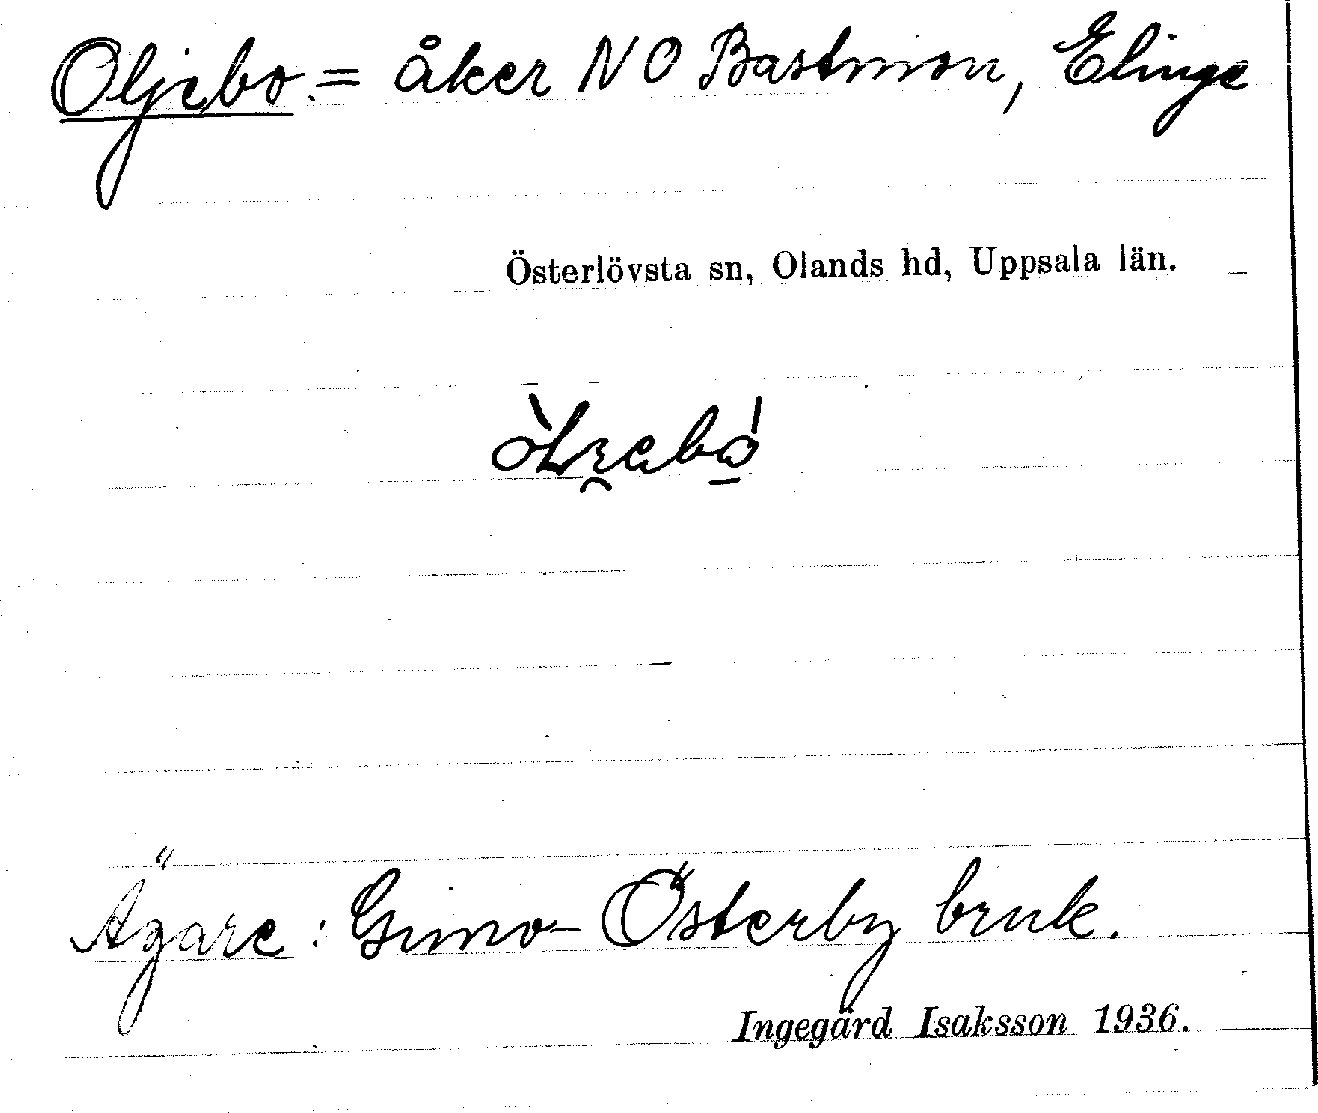 Oljebo = åker NO Bastmon, Elinge
Österlövsta sn, Olands hd, Uppsala län.
Ägare: Gimo-Österby bruk.
Ingegärd Isaksson 1936.